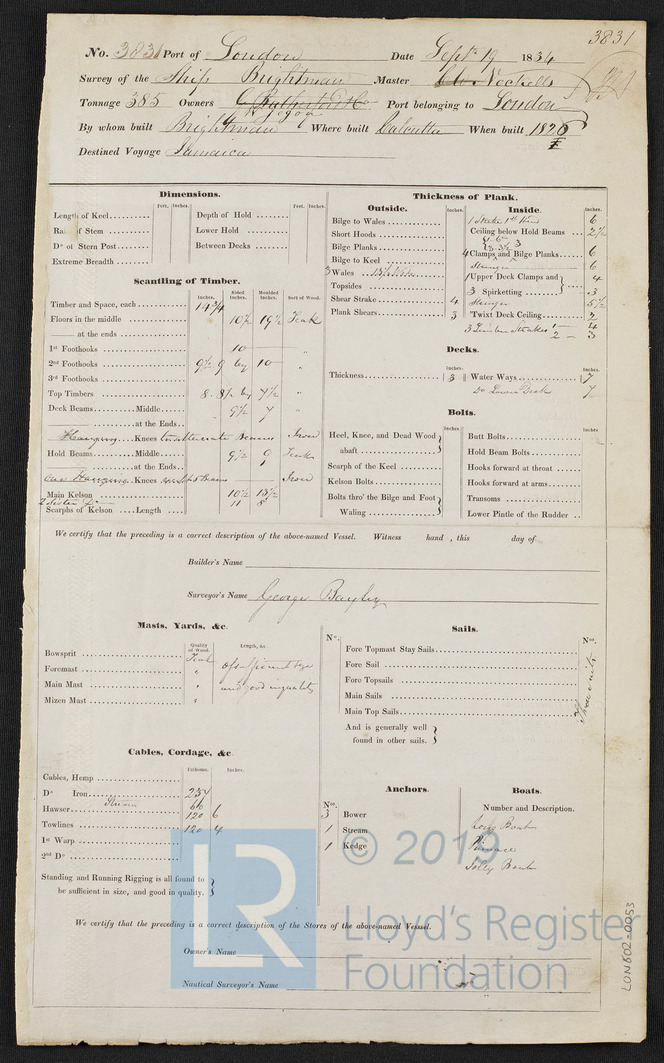 3831
No. 3831 Port of London Date Septr 19 1834
Survey of the Ship Brightman Master Nockells
Tonnage 385 Owners C Rutherford & Co Port belonging to London
By whom built Brightman Where built Calcutta When built 1826
Destined Voyage Jamaica
Dimensions.
Feet. Inches. Feet. Inches.
Length of Keel Depth of Hold
Rake of Stem Lower Hold
Do of Stern Post Between Decks
Extreme Breadth
Scantling of Timber.
Inches. Sided Inches. Moulded Inches. Sort of Wood.
Timber and Space, each 14 3/4
Floors in the middle 10½ 19½ Teak
at the ends
1st Foothooks 10 "
2nd Foothooks 9½ 9 by 10 "
3rd Foothooks
Top Timbers 8 8½ by 7½ "
Deck Beams Middle 9½ 7 "
at the Ends
Hanging Knees to alternate Beams Iron
Hold Beams Middle 9½ 9 Teak
at the Ends
Hanging Knees Beams Iron
Main Kelson 10½ 13½
2 Sister Do 11 8
Scarphs of Kelson Length
Thickness of Plank.
Outside. Inches. Inside. Inches.
Bilge to Wales 6
Short Hoods Ceiling below Hold Beams 2½
Bilge Planks 3
Bilge to Keel 4 Clamps and Bilge Planks 6
3 Wales Stringer 6
Topsides 4 Upper Deck Clamps and 4
3 Spirketting 3
Shear Strake 4 Stringer 5½
Plank Shears 3 'Twixt Deck Ceiling 2
3 Limber Strakes 1 — 4
2 — 3
Decks.
Inches. Inches.
Thickness 3 Water Ways 7
Do Lower Deck 7
Bolts.
Inches. Inches
Heel, Knee, and Dead Wood abaft Butt Bolts
Hold Beam Bolts
Scarph of the Keel Hooks forward at throat
Kelson Bolts Hooks forward at arms
Bolts thro' the Bilge and Foot Waling Transoms
Lower Pintle of the Rudder
We certify that the preceding is a correct description of the above-named Vessel. Witness hand, this day of
Builder's Name
Surveyor's Name George Bayley
Masts, Yards, &c.
Quality of Wood. Length, &c.
Bowsprit Teak
Foremast " of sufficient size
Main Mast " and good in quality
Mizen Mast "
Sails.
No. No.
Fore Topmast Stay Sails
Fore Sail
Fore Topsails
Main Sails
Main Top Sails
Three suits
And is generally well
found in other sails.
Cables, Cordage, &c
Fathoms. Inches.
Cables, Hemp
Do Iron 254
Stream 60
Hawser 120 6
Towlines 120 4
1st Warp
2nd Do
Standing and Running Rigging is all found to
be sufficient in size, and good in quality.
Anchors.
Nos.
3 Bower
1 Stream
1 Kedge
Boats.
Number and Description.
Long Boat
Pinnace
Jolly Boat
We certify that the preceding is a correct description of the Stores of the above-named Vesssel.
Owner's Name
Nautical Surveyor's Name
LON602-0053
LR
© 2019
Lloyd's Register
Foundation